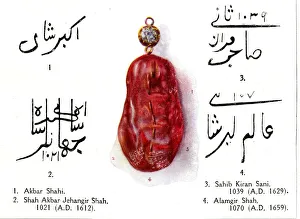 اکبر شاہی
1
۱۰۳۹ ثانی
صاحب قران
3.
۱۰۲۱
2.
۱۰۷۰
عالمگیر شاہ
4.
1. Akbar Shahi.
2. Shah Akbar Jehangir Shah,
1021 (A.D. 1612).
3. Sahib Kiran Sani.
1039 (A.D. 1629).
4. Alamgir Shah.
1070 (A.D. 1659).